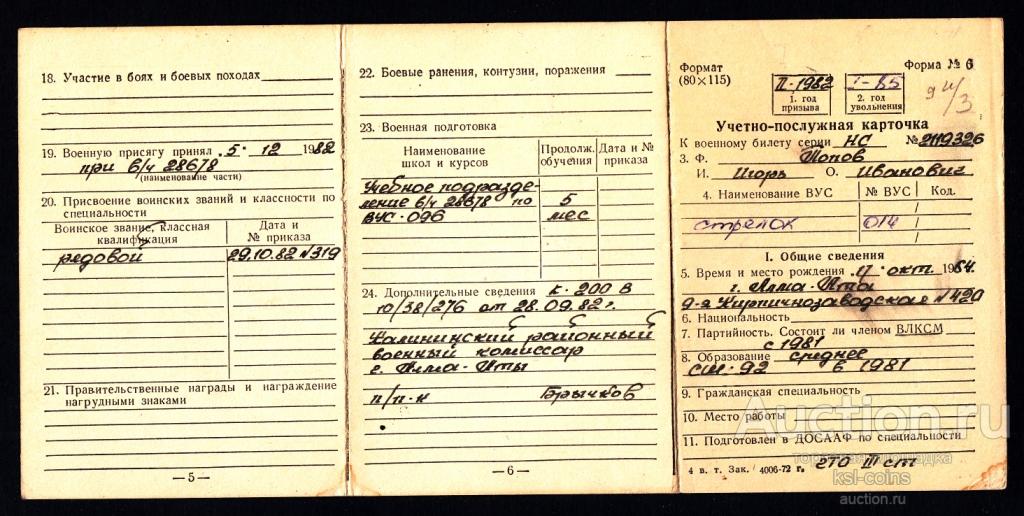 18. Участие в боях и боевых походах
19. Военную присягу принял 5 · 12 1982
при в/ч 28678
(наименование части)
20. Присвоение воинских званий и классности по
специальности
Воинское звание, классная
квалификация
Дата и
№ приказа
рядовой 29.10.82 №319
21. Правительственные награды и награждение
нагрудными знаками
—5—
22. Боевые ранения, контузии, поражения
23. Военная подготовка
Наименование
школ и курсов
Продолж.
обучения
Дата и №
приказа
Учебное подразде-
ление в/ч 28678 по 5
ВУС-096 мес
24. Дополнительные сведения К-200 В
10/58/276 от 28.09.82 г.
Калининский районный
военный комиссар
г. Алма-Аты
п/п-к Брычков
—6—
Формат
(80×115)
Форма № 6
II-1982
1. год
призыва
2. год
увольнения
Учетно-послужная карточка
К военному билету серии НС № 2119326
3. Ф. Попов
И. Игорь О. Иванович
4. Наименование ВУС № ВУС Код.
стрелок 014
I. Общие сведения
5. Время и место рождения 17 · окт. 1964.
г. Алма-Ата
д-я Кирпичнозаводская №420
6. Национальность
7. Партийность. Состоит ли членом ВЛКСМ
с 1981
8. Образование среднее
СШ-92 в 1981
9. Гражданская специальность
10. Место работы
11. Подготовлен в ДОСААФ по специальности
ГТО III ст
4 в. т. Зак. 4006-72 г.
Auction.ru
торговая площадка
ksl-coins
auction.ru